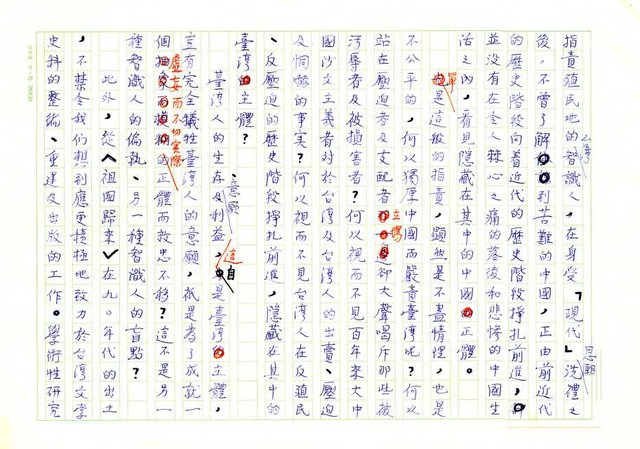 指責殖民地的台灣智識人，在身受「現代思潮」洗禮之
後，不曾了解到苦難的中國，正由前近代
的歷史階段向着近代的歷史階段掙扎前進，
並沒有在令人棘心之痛的落後和悲慘的中國生
活之內，看見隱藏在其中的中國正體。
單是這般的指責，顯然是不盡情理，也是
不公平的，何以獨厚中國而嚴責臺灣呢？何以
站在壓迫者及支配者立場卻大聲唱斥那些被
污辱者及被損害者？何以視而不見百年來大中
國沙文主義者對於台灣及台灣人的出賣、壓迫
及恫嚇的事實？何以視而不見台灣人在反殖民
、反壓迫的歷史階段掙扎前進，隱藏在其中的
臺灣主體？
臺灣人的生存及利益、意願，這自是臺灣主體，
豈有完全犧牲臺灣人的意願，祇是為了成就一
個虛妄而不切實際的正體而效忠不移？這不是另一
種智識人的偏執、另一種智識人的盲點？
此外，從〈祖國歸來〉在九〇年代的出土
，不禁令我們想到應更積極地致力於台灣文學
史料的整編、重建及出版的工作。學術性研究